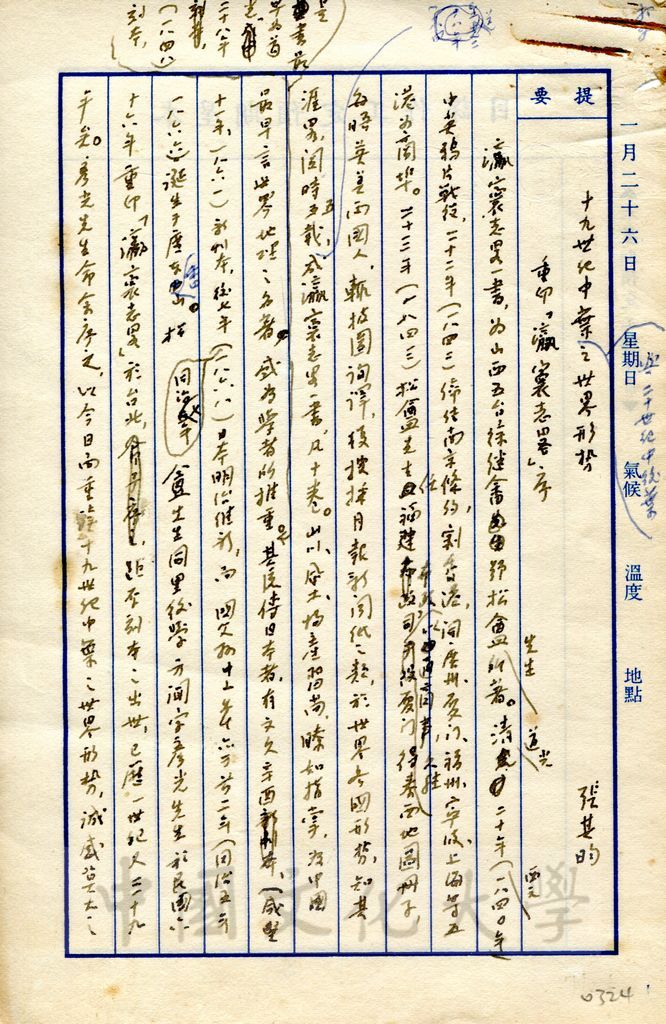 提要
一月二十六日 星期日 氣候 溫度 地點
十九世紀中葉之世界形勢
與二十世紀中後葉
重印「瀛寰志畧」序
張其昀
瀛寰志畧一書,為山西五台徐繼畬號松龕先生所著。清道光二十年(一八四〇年
中英鴉片戰役,二十二年(一八四二)締結南京條約,割香港,開廣州廈門、福州、寧波、上海等五
港為商埠。二十三年(一八四三)松龕先生任福建布政司,
得泰西地圖冊子,
每晤英美兩國人,輒披圖詢譯,復搜採月報新聞紙之類,於世界各國形勢,知其
涯畧,閱時五載,成瀛寰志畧一書,凡十卷。山川、風土、物產習尚,瞭如指掌,為中國
最早言世界地理之名著,咸為學者所推重。其後傳日本者,有文久辛酉
(咸豐
十一年,一八六一)新刊本,後七年(一八六八)日本明治維新,而 國父於
二年(同治五年
一八六六)誕生于
同治
先生同里後學方聞字彥光先生於民國六
十六年重印「瀛寰志畧」於台北,
距本刻本之出世,已歷一世紀又二十九
年矣。彥光先生命余序之,以今日而重論十九世紀中葉之世界形勢,誠感莫大之
是書最
早為道
光
二十八年
刻
(一八四八
刻本,
中國文化大學
0324